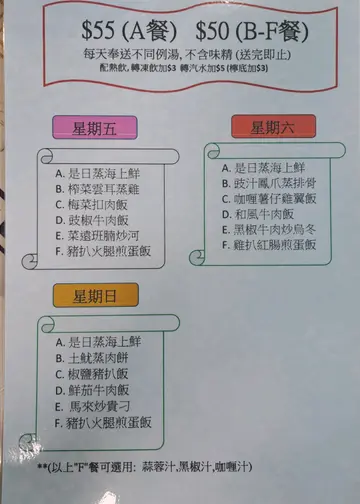 $55 (A餐) $50 (B-F餐)
每天奉送不同例湯, 不含味精 (送完即止)
配熱飲, 轉凍飲加$3 轉汽水加$5 (檸底加$3)
星期五
A. 是日蒸海上鮮
B. 榨菜雲耳蒸雞
C. 梅菜扣肉飯
D. 豉椒牛肉飯
E. 菜遠班腩炒河
F. 豬扒火腿煎蛋飯
星期六
A. 是日蒸海上鮮
B. 豉汁鳳爪蒸排骨
C. 咖喱薯仔雞翼飯
D. 和風牛肉飯
E. 黑椒牛肉炒烏冬
F. 雞扒紅腸煎蛋飯
星期日
A. 是日蒸海上鮮
B. 土魷蒸肉餅
C. 椒鹽豬扒飯
D. 鮮茄牛肉飯
E. 馬來炒貴刁
F. 豬扒火腿煎蛋飯
**(以上"F"餐可選用: 蒜蓉汁,黑椒汁,咖喱汁)